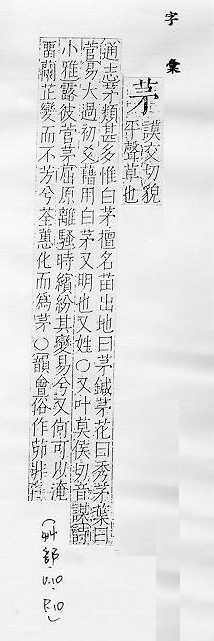 字彙
茅 謨交切貌
平聲草也
通志茅類甚多惟白茅擅名苗出地曰茅鍼茅花曰秀茅葉曰
菅易大過初爻藉用白茅又明也又姓○又叶莫侯切音謀詩
小雅露彼菅茅屈原離騷時繽紛其變易兮又何可以淹
留蘭芷變而不芳兮荃蕙化而為茅○韻會俗作茆非
(艸部